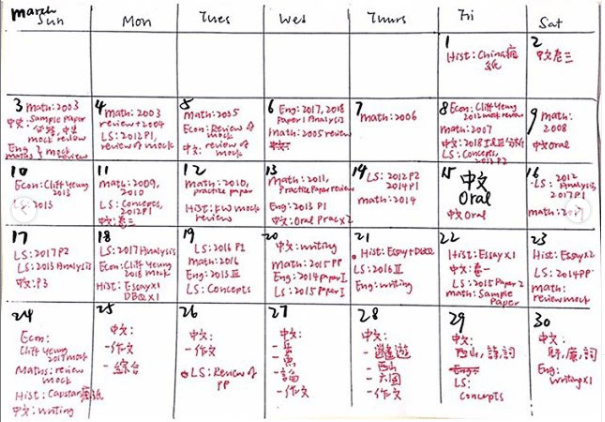 March
Sun Mon Tues Wed Thurs Fri Sat
1
Hist: China
2
中文卷三
3 Math: 2003
中文: Sample paper
mock review
Eng
maths } mock review
4
Math: 2003
review + 2004
LS: 2012 P1,
review of mock
5
Math: 2005
Econ: Review of mock
中文: review of mock
6 Eng: 2017, 2018
Paper 1 Analysis
Math: 2005 review
中文:
7
Math: 2006
8 Econ: Cliff Yeung
2012 mock review
math: 2007
中文: 2018
LS: Concepts,
2013 P2
9 math:
2008
中文 Oral
10
Econ: Cliff Yeung
2013
LS: 2013
11
Math: 2009,
2010
LS: Concepts,
2012 P1
中文: 卷三
12
Math: 2010,
practice paper
Hist: HW mock
review
13
Math: 2011,
Practice Paper review
Eng: 2013 P1
中文: Oral Prac x 2
14
LS: 2012 P2
2014 P1
math: 2014
15 中文
Oral
中文 Oral
16 LS: 2012
Analysis,
2017 P1
math:
17
LS: 2017 P2
LS: 2013 Analysis
中文: P3
18
LS: 2017 Analysis
Econ: Cliff Yeung
2016 mock
Hist: Essay x1
DBQ x1
19
LS: 2016 P1
Math: 2016
Eng: 2013 II
LS: Concepts
20
中文: writing
Math: 2015 PP
Eng: 2014 paper I
LS: 2015 Paper I
21
Hist: Essay + DBQ
LS: 2016 II
Eng: writing
22
Hist: Essay x1
中文: 卷一
LS: 2015 Paper 2
math: Sample
Paper
23
Hist: Essay x2
LS: 2014 PP
Math:
review mock
24
Econ:
Cliff Yeung
2017 mock
Maths: review
mock
Hist: Capstan
中文: writing
25
中文:
- 作文
- 綜合
26
中文:
- 作文
LS: Review of
PP
27
中文:
- 岳
- 魚
- 論
- 作文
28
中文:
- 逍遙遊
- 西山
- 六國
- 作文
29
中文:
西山, 詩, 詞
Eng:
LS:
Concepts
30
中文:
師, 廉, 詞
Eng:
writing x1